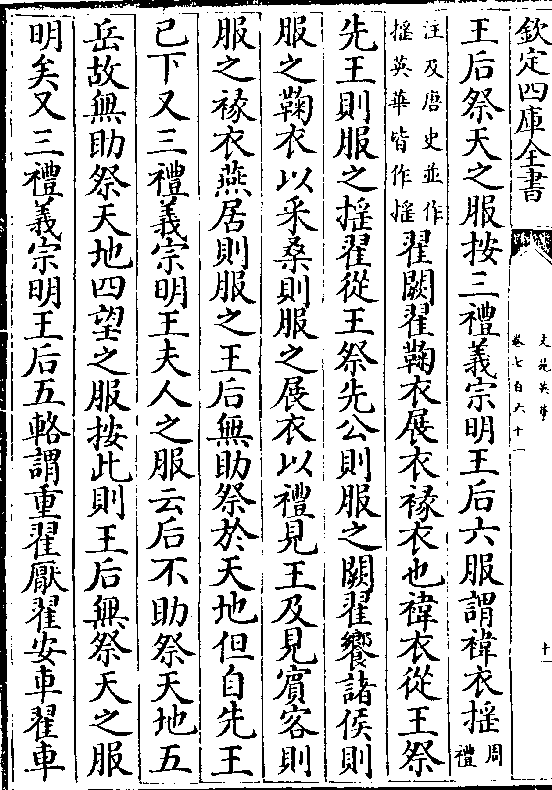 欽定四庫全書
文苑英華
卷七百六十一
十一
王后祭天之服按三禮義宗明王后六服謂褘衣揺周禮
注及唐史並作揺英華皆作揺翟闕翟鞠衣展衣褖衣也褘衣從王祭
先王則服之揺翟從王祭先公則服之闕翟饗諸侯則
服之鞠衣以采桑則服之展衣以禮見王及見賓客則
服之褖衣燕居則服之王后無助祭於天地但自先王
已下又三禮義宗明王夫人之服云后不助祭天地五
岳故無助祭天地四望之服按此則王后無祭天之服
明矣又三禮義宗明王后五輅謂重翟厭翟安車翟車